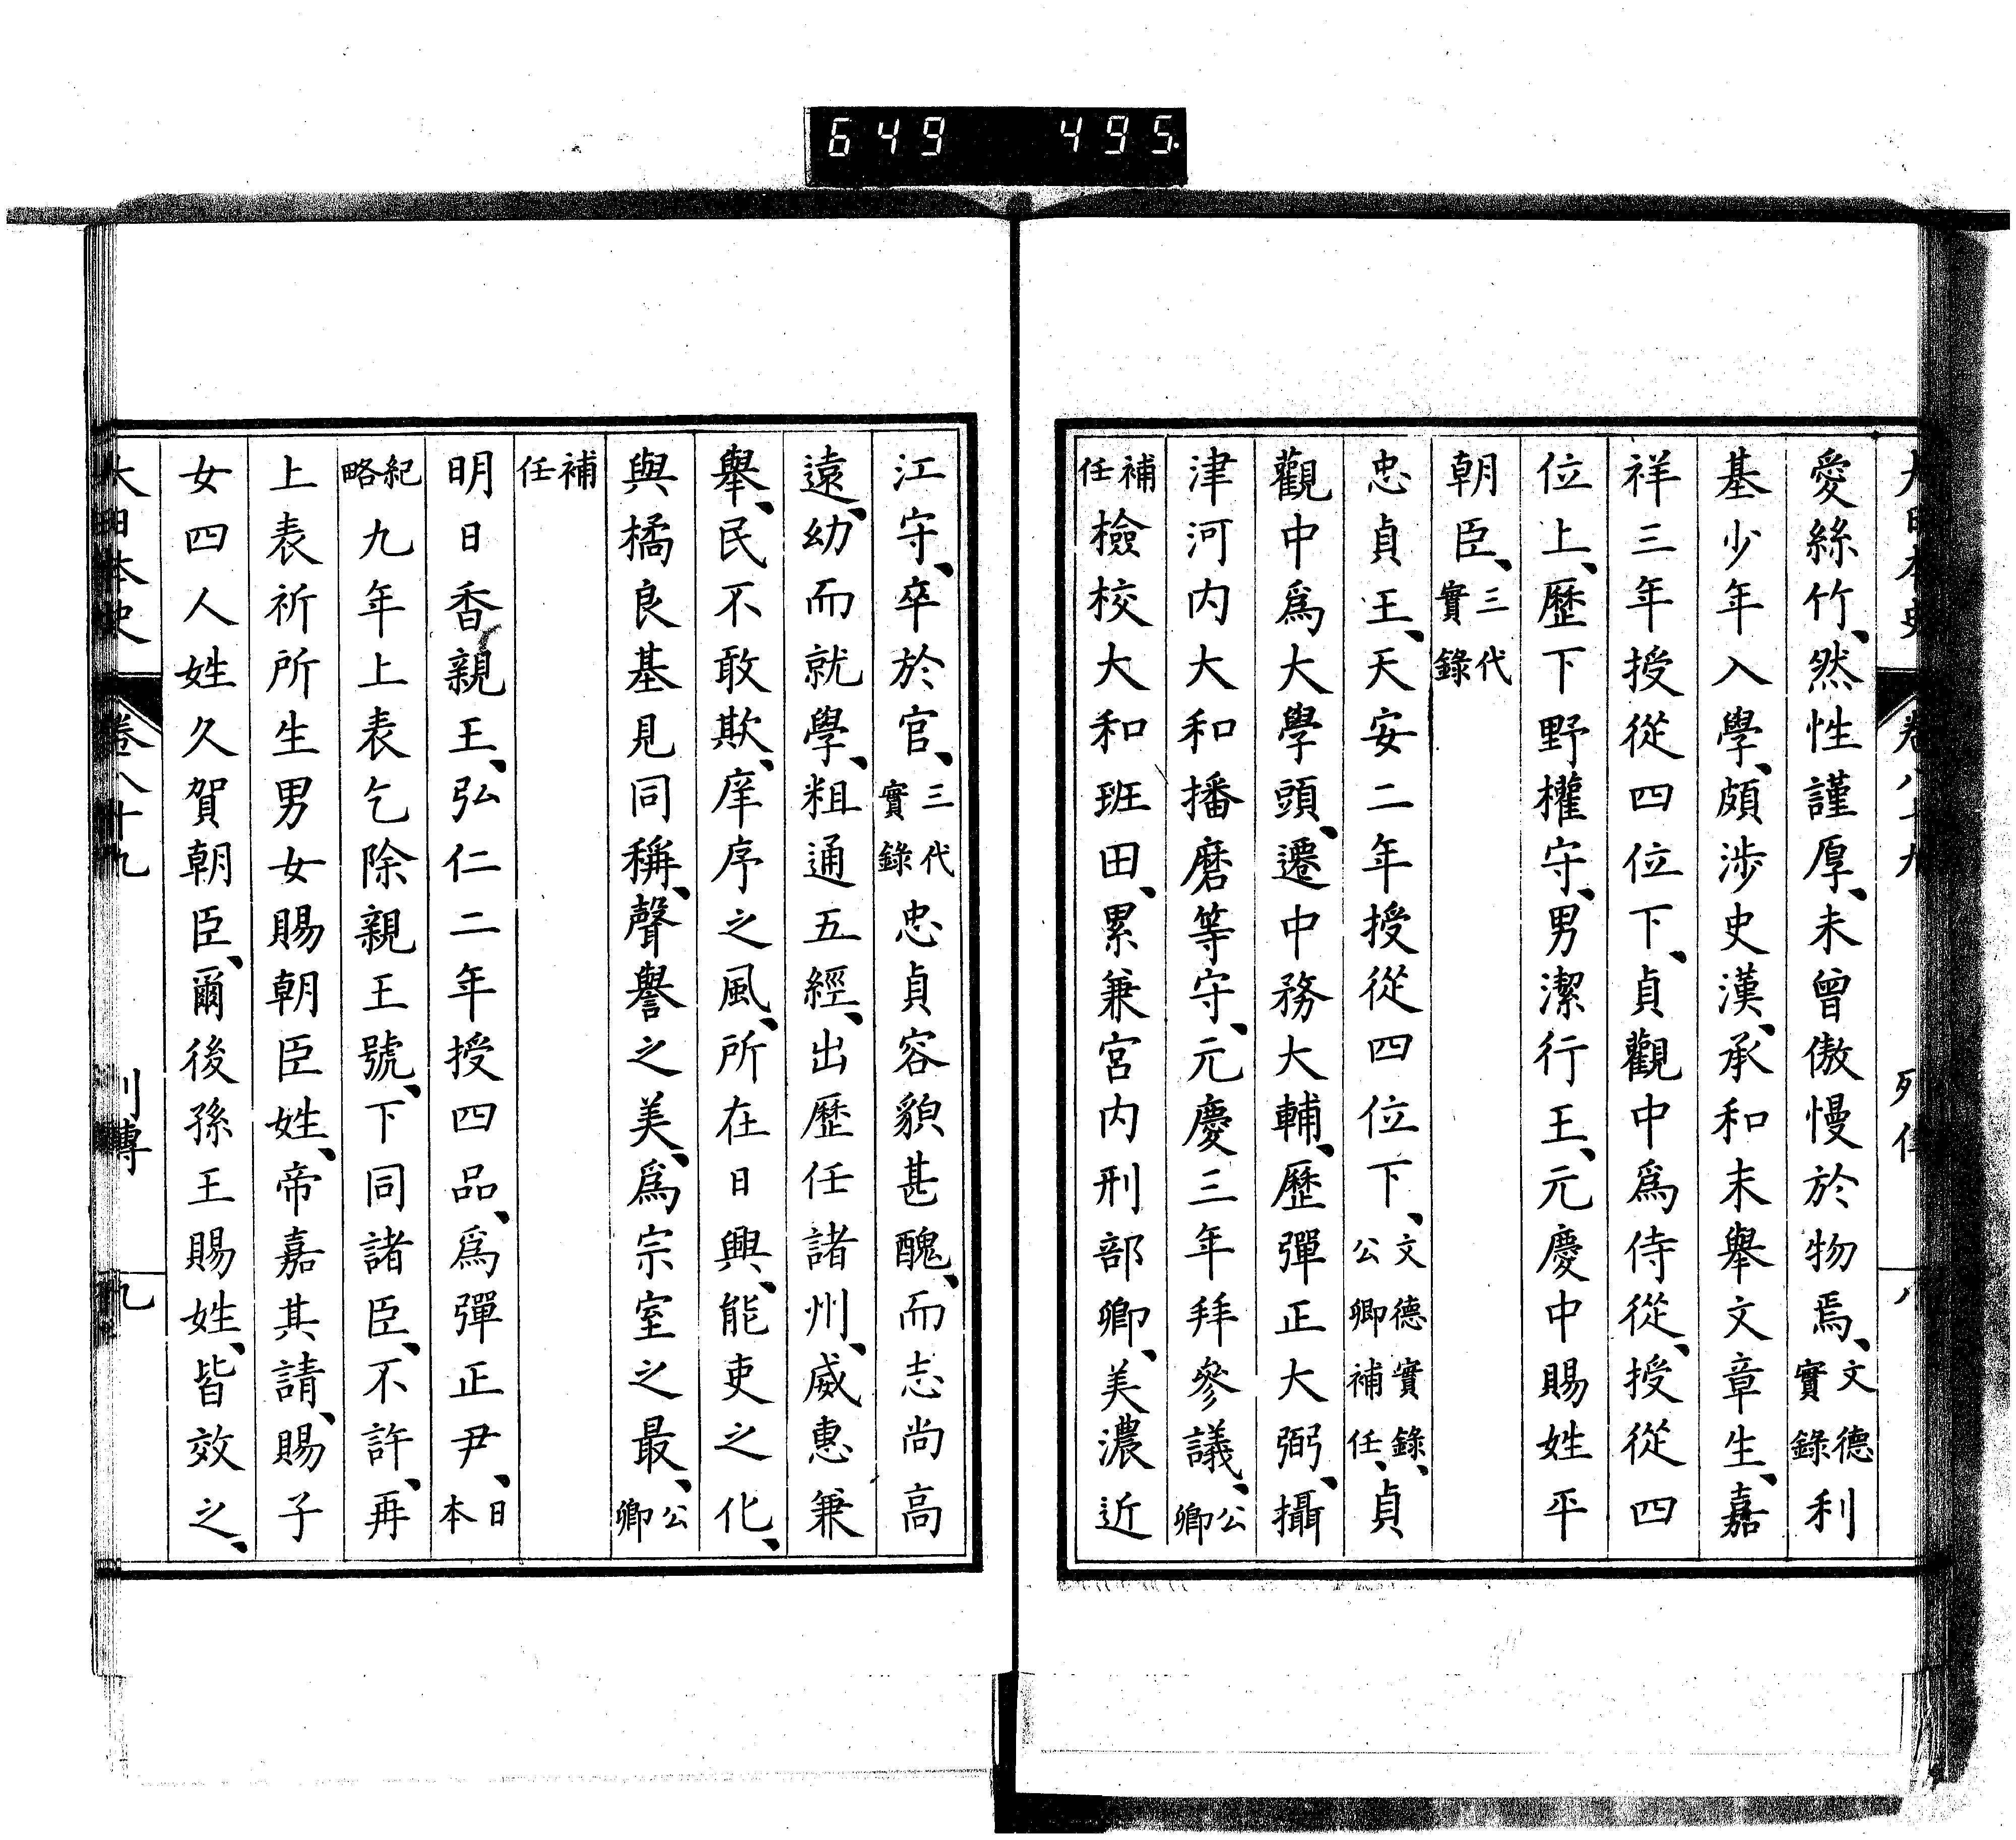 649 495
大日本史 卷八十九 列傳 八
愛絲竹、然性謹厚、未曾傲慢於物焉、文德實錄利
基少年入學、頗涉史漢、承和末舉文章生、嘉
祥三年授從四位下、貞觀中爲侍從、授從四
位上、歷下野權守、男潔行王、元慶中賜姓平
朝臣、三代實錄
忠貞王、天安二年授從四位下、文德實錄、公卿補任、貞
觀中爲大學頭、遷中務大輔、歷彈正大弼、攝
津河內大和播磨等守、元慶三年拜參議、公卿
補任檢校大和班田、累兼宮內刑部卿、美濃近
江守、卒於官、三代實錄忠貞容貌甚醜、而志尚高
遠、幼而就學、粗通五經、出歷任諸州、威惠兼
舉、民不敢欺、庠序之風、所在日興、能吏之化、
與橘良基見同稱、聲譽之美、爲宗室之最、公卿
補任
明日香親王、弘仁二年授四品、爲彈正尹、日本
紀略九年上表乞除親王號、下同諸臣、不許、再
上表祈所生男女賜朝臣姓、帝嘉其請、賜子
女四人姓久賀朝臣、爾後孫王賜姓、皆效之、
大日本史 卷八十九 列傳 九